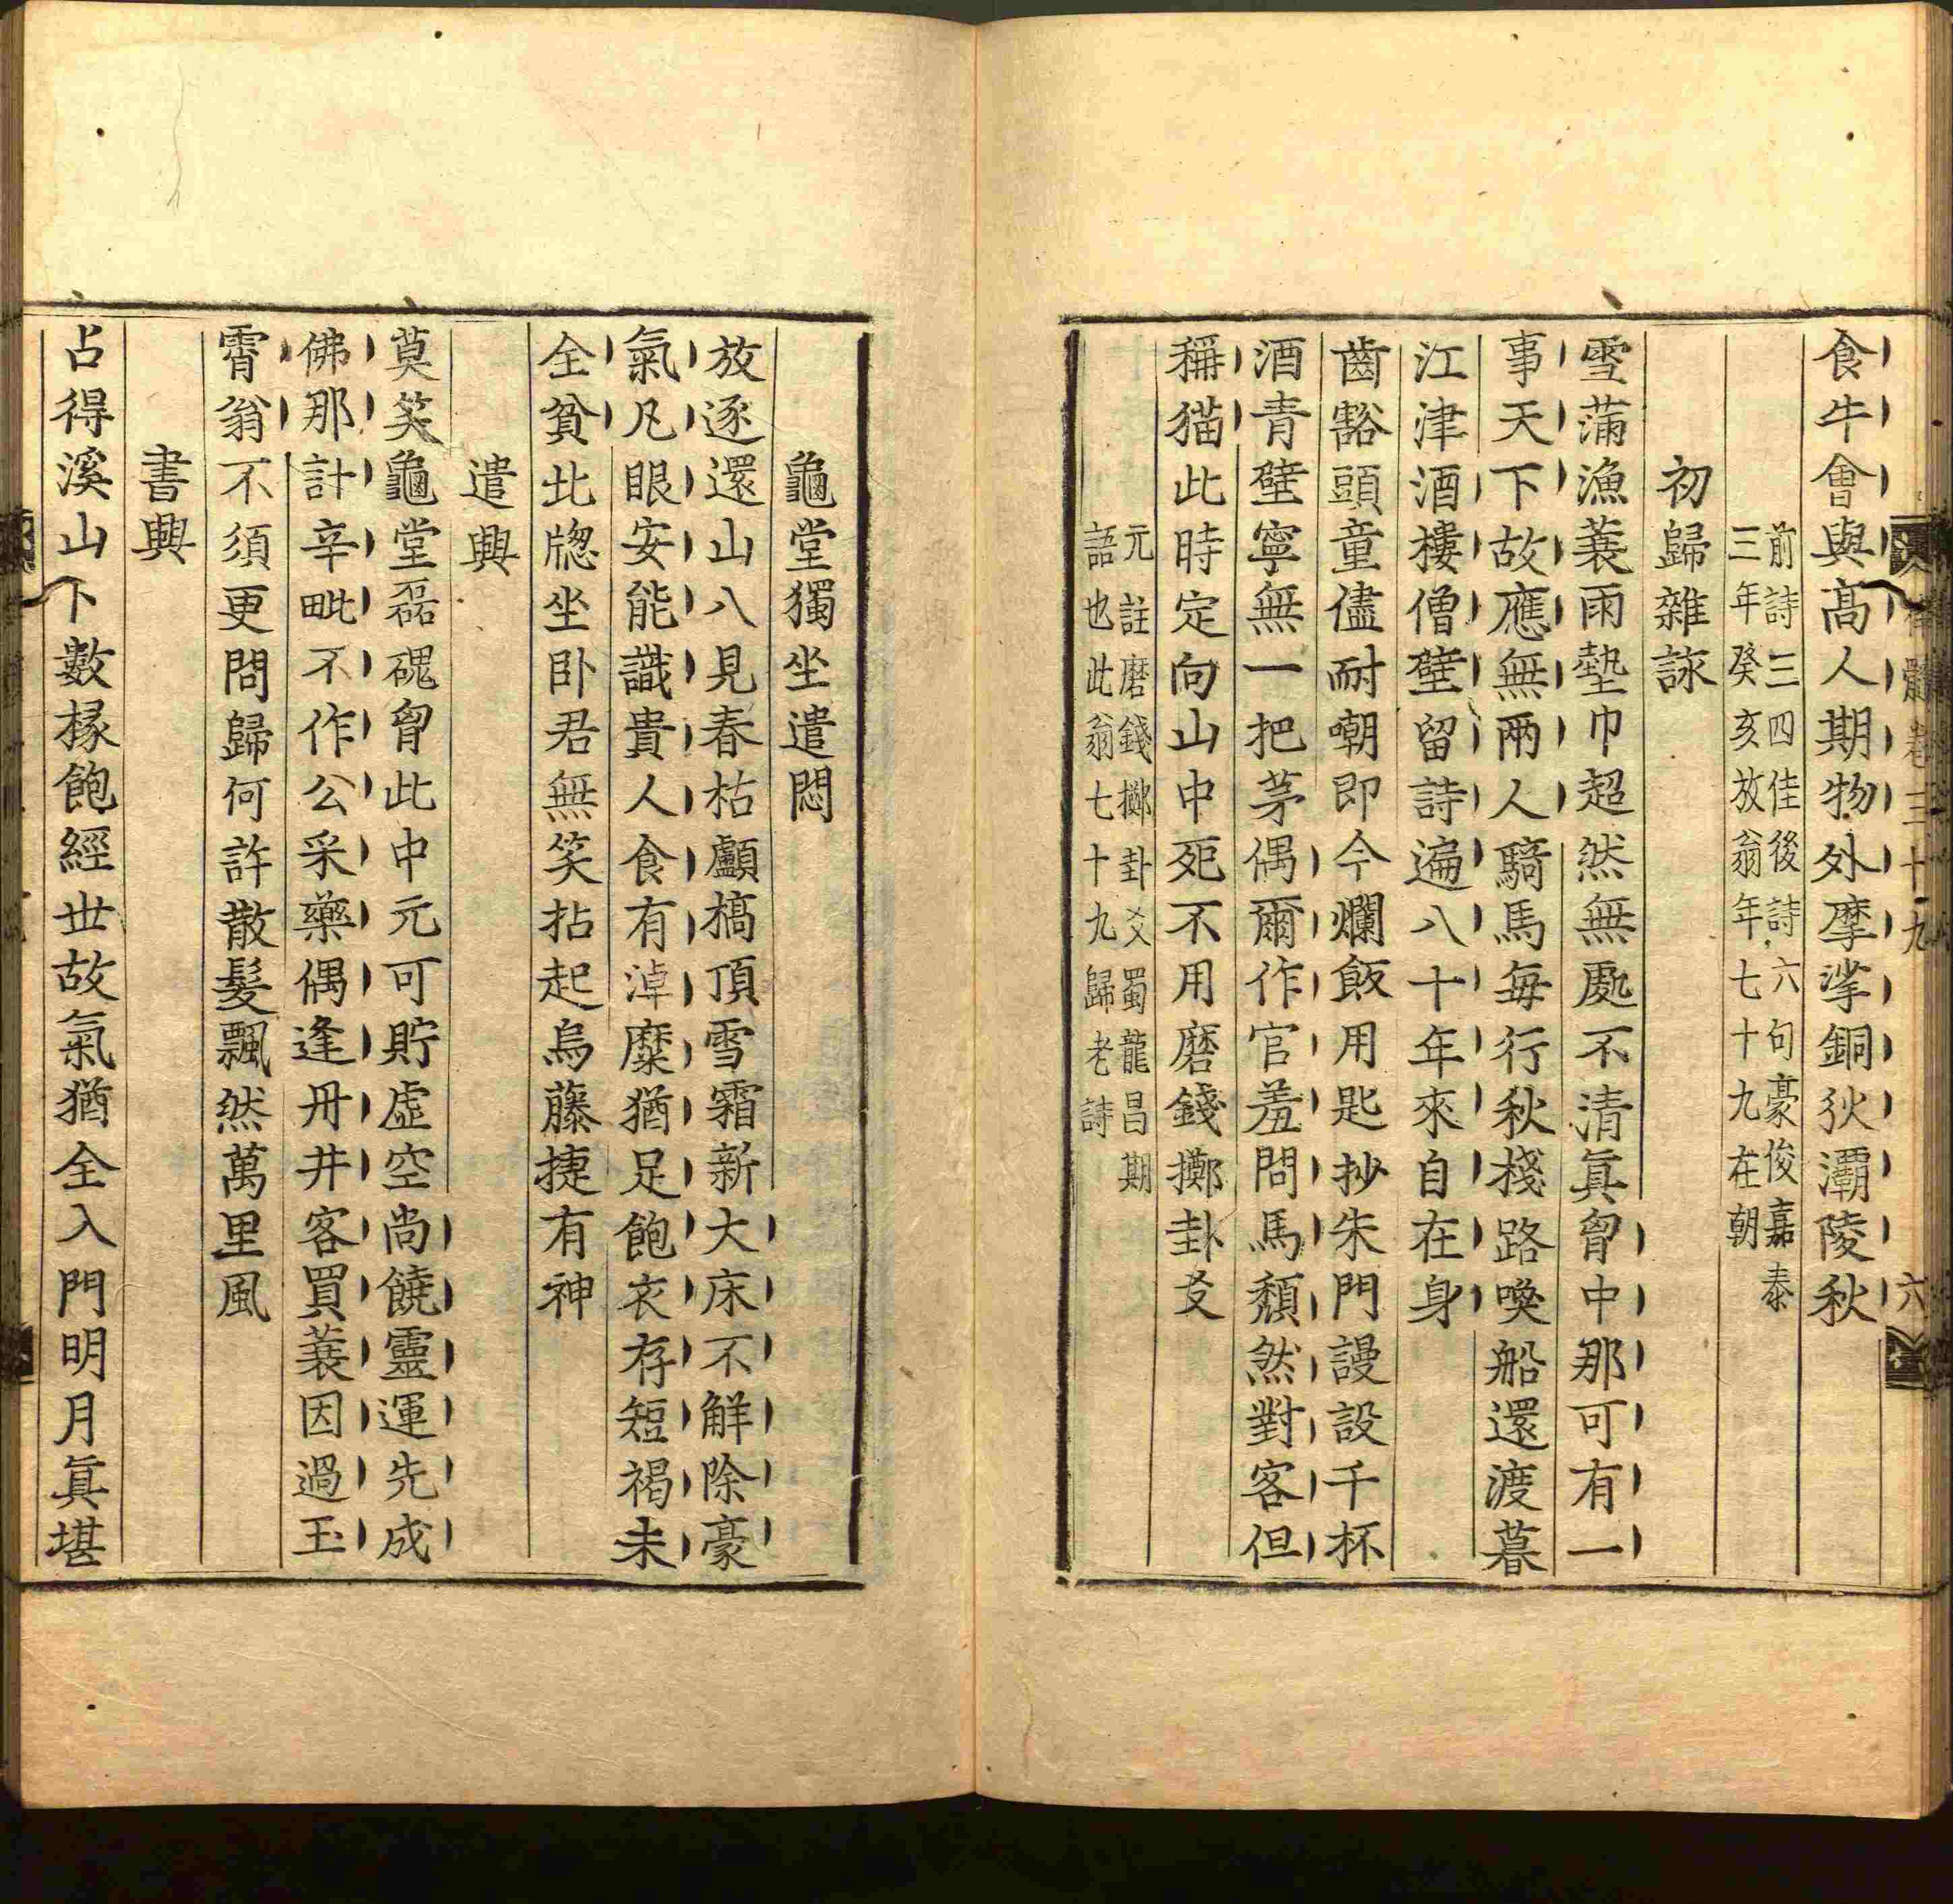 食牛會與高人期物外摩挲銅狄灞陵秋
前詩三四佳後詩六句豪俊嘉泰
三年癸亥放翁年七十九在朝
初歸雜詠
雪蒲漁蓑雨墊巾超然無處不清眞胷中那可有一
事天下故應無兩人騎馬每行秋棧路喚船還渡暮
江津酒樓僧壁留詩遍八十年來自在身
齒豁頭童儘耐嘲即今爛飯用匙抄朱門謾設千杯
酒青壁寧無一把茅偶爾作官羞問馬頹然對客但
稱猫此時定向山中死不用磨錢擲卦爻
元註磨錢擲卦爻蜀龍昌期
語也此翁七十九歸老詩
龜堂獨坐遣悶
放逐還山八見春枯顱槁頂雪霜新大床不解除豪
氣凡眼安能識貴人食有淖糜猶足飽衣存短褐未
全貧北牕坐卧君無笑拈起烏藤捷有神
遣興
莫笑龜堂磊磈胷此中元可貯虛空尚饒靈運先成
佛那計辛毗不作公采藥偶逢丹井客買蓑因過玉
霄翁不須更問歸何許散髮飄然萬里風
書興
占得溪山下數椽飽經世故氣猶全入門明月眞堪